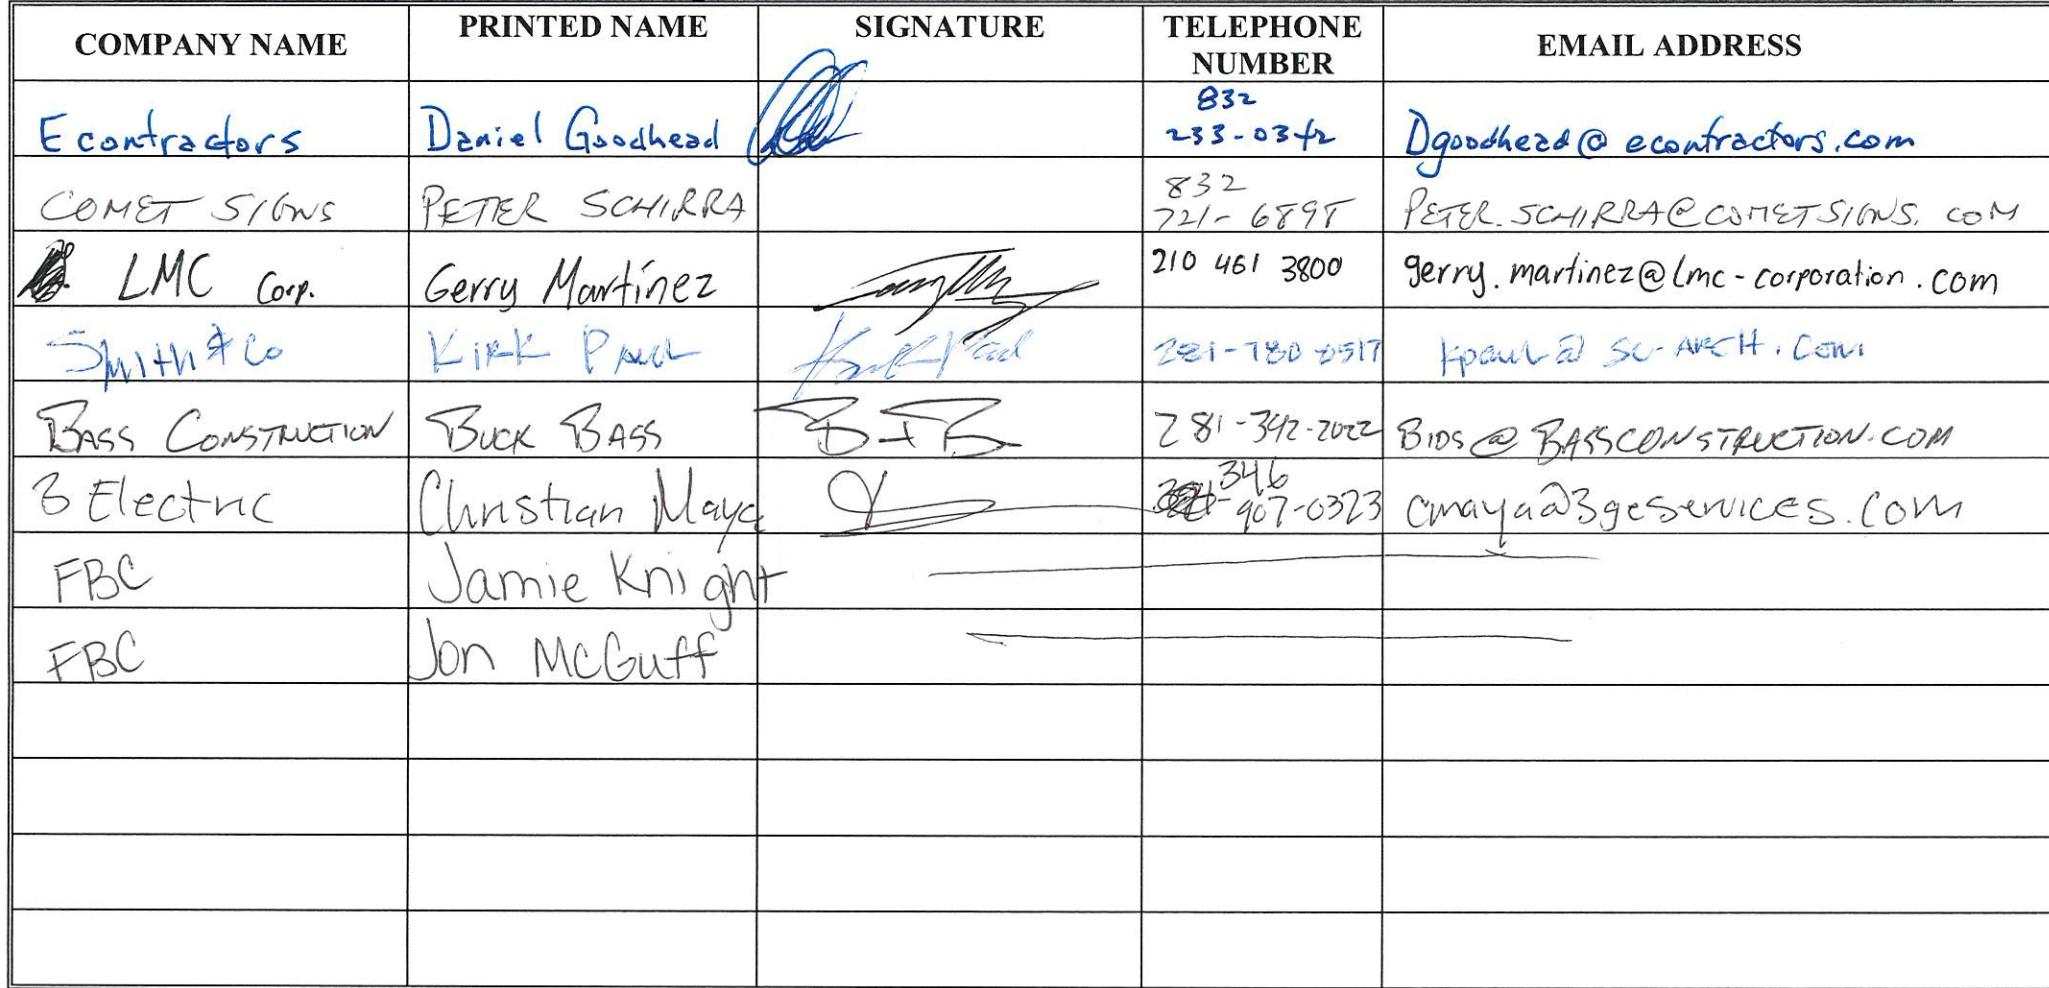 COMPANY NAME PRINTED NAME SIGNATURE TELEPHONE NUMBER EMAIL ADDRESS
Econtractors Daniel Goodhead 832 233-0342 Dgoodhead@econtractors.com
COMET SIGNS PETER SCHIRRA 832 721-6898 PETER.SCHIRRA@COMETSIGNS.COM
LMC Corp. Gerry Martinez 210 461 3800 gerry.martinez@lmc-corporation.com
Smith & Co Kirk Paul 281-780-0517 kpaul@sc-arch.com
BASS CONSTRUCTION BUCK BASS 281-342-2022 BIDS@BASSCONSTRUCTION.COM
3 Electric Christian Maya 346 907-0323 cmaya@3geservices.com
FBC Jamie Knight
FBC Jon McGuff